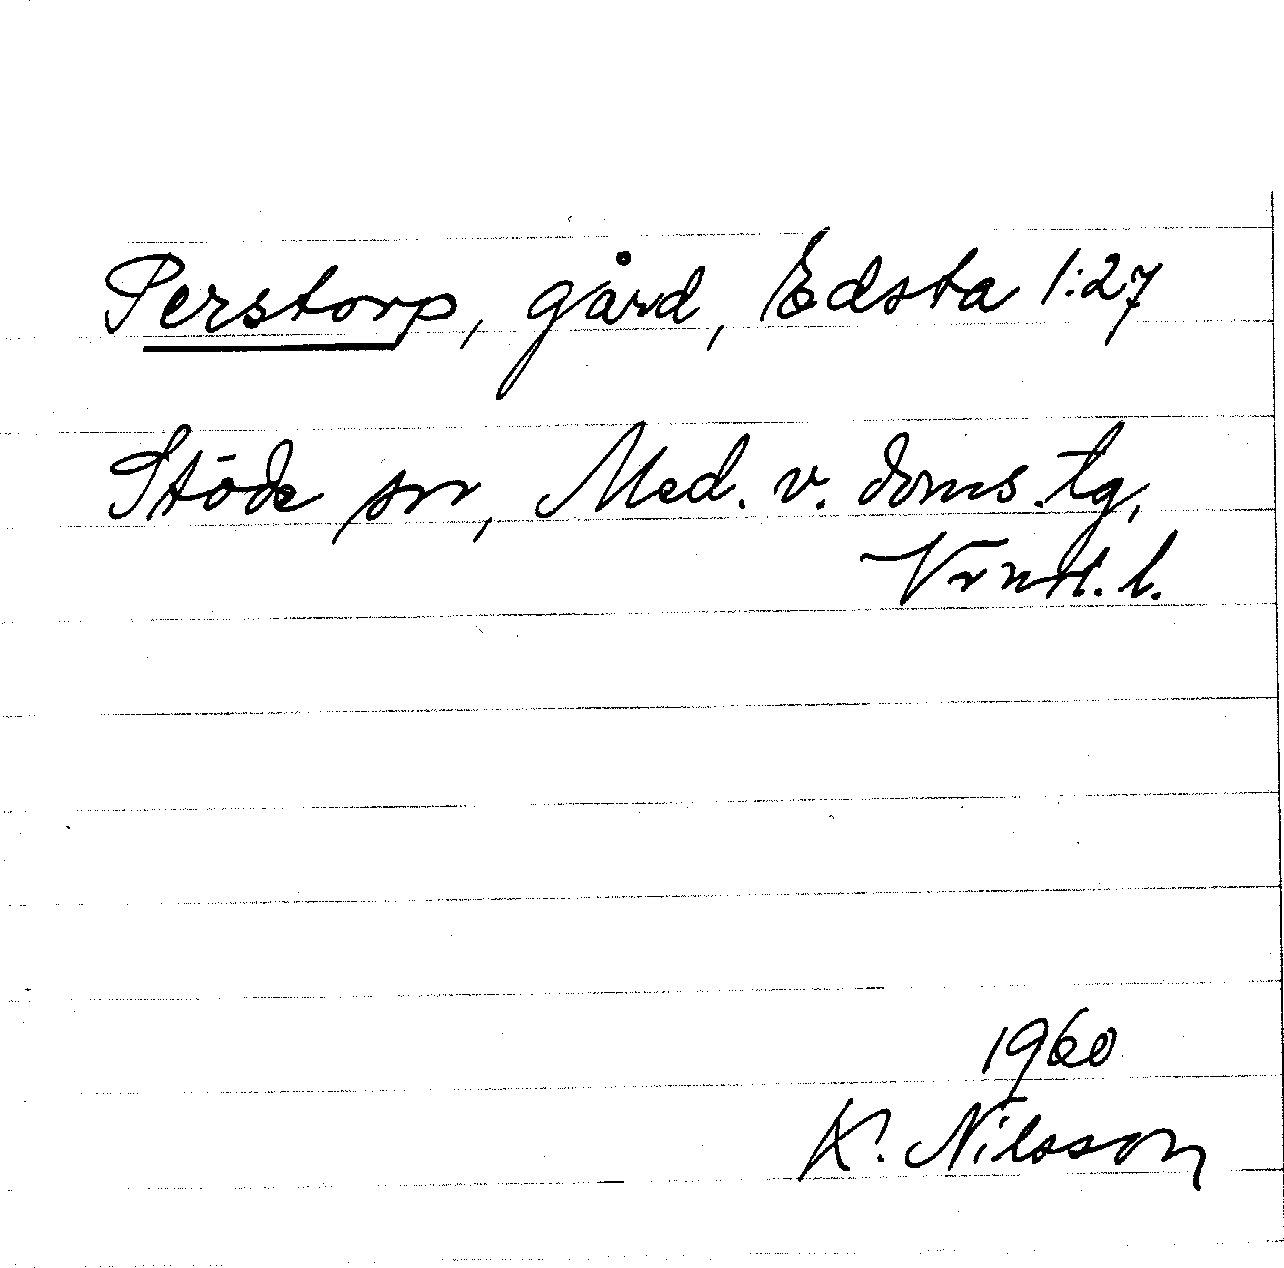 Perstorp, gård, Edsta 1:27
Stöde sn, Med. v. doms. tg,
Vrnrl. l.
1960
K. Nilsson